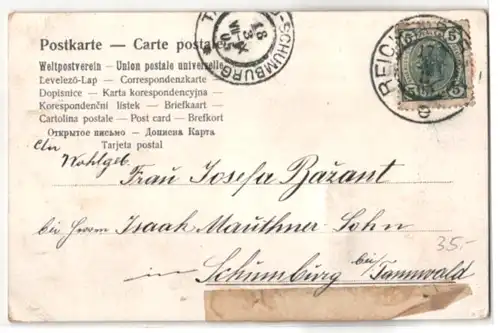 Postkarte — Carte postale
Weltpostverein — Union postale universelle
Levelező-Lap — Correspondenzkarte
Dopisnice — Karta korespondencyjna —
Korespondenční lístek — Briefkaart —
Cartolina postale — Post card — Brefkort
Открытое письмо — Дописна Карта
Tarjeta postal
-SCHUMBURG
18
5
5
5
5
REICH
Wohlgeb.
Frau Josefa Bažant
bei Herrn Isaak Mauthner Sohn
in Schumburg bei Tannwald
35.-